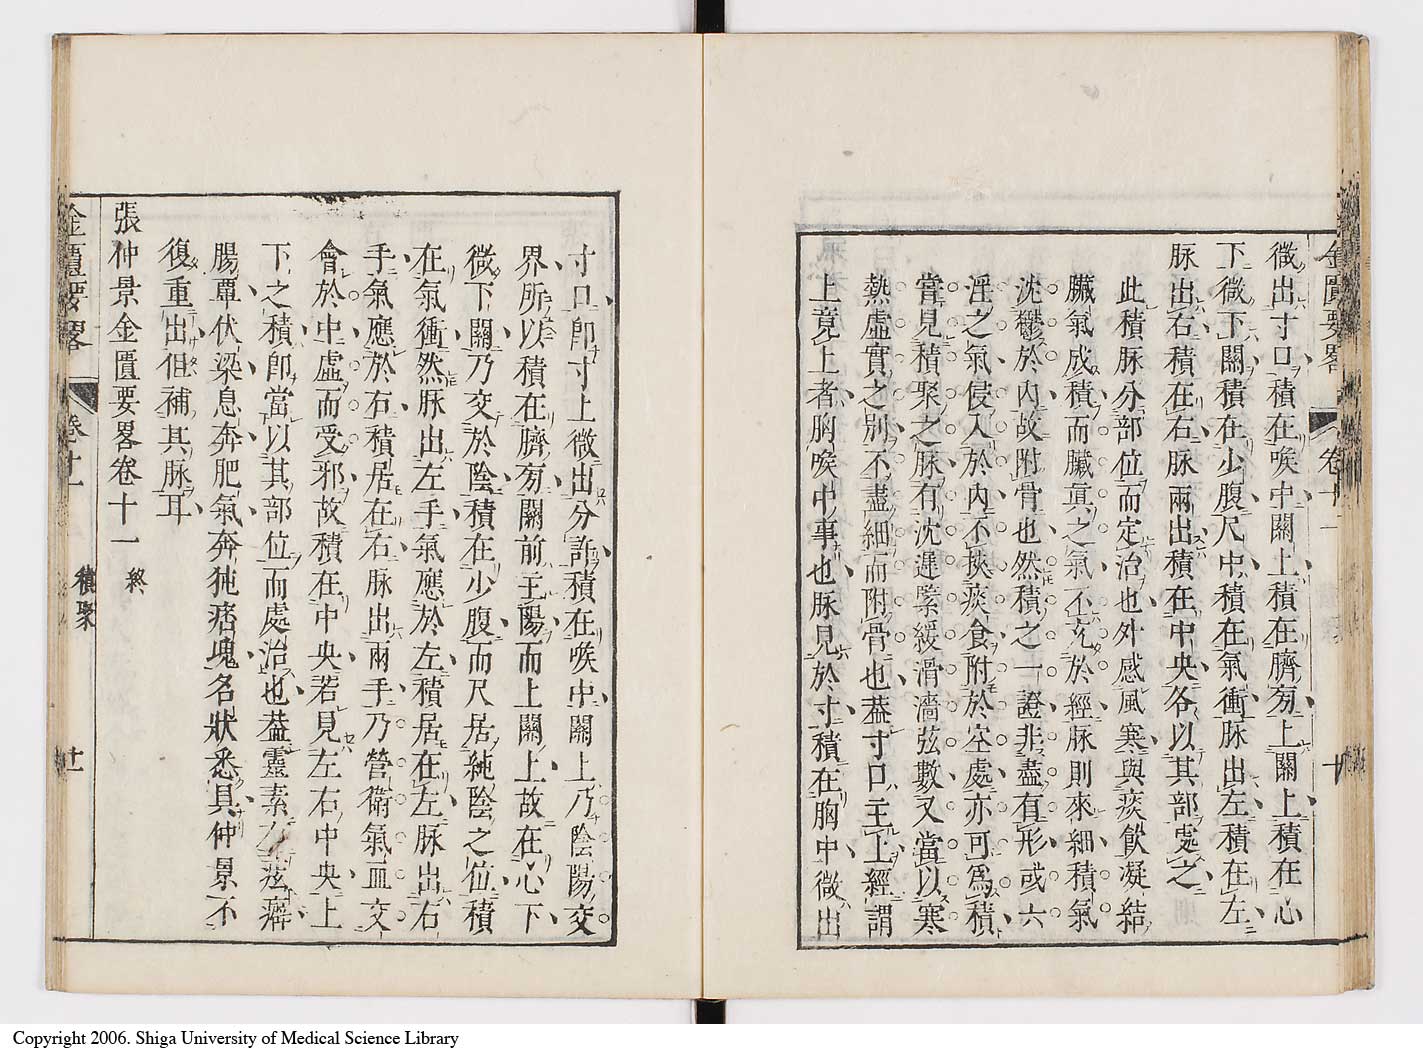 金匱要畧 卷十一 十
微出寸口積在喉中關上積在臍旁上關上積在心
下微下關積在少腹尺中積在氣衝脉出左積在左
脉出右積在右脉兩出積在中央各以其部處之
此積脉分部位而定治也外感風寒與痰飲凝結
臟氣成積而臟真之氣不充於經脉則來細積氣
沈鬱於內故附骨也然積之一證非盡有形或六
淫之氣侵入於內不挾痰食附於空處亦可為積
嘗見積聚之脉有沈遲緊緩滑濇弦數又當以寒
熱虛實之別不盡細而附骨也葢寸口主上經謂
上竟上者胸喉中事也脉見於寸積在胸中微出
寸口卽寸上微出分許積在喉中關上乃陰陽交
界所以積在臍旁關前主陽而上關上故在心下
微下關乃交於陰積在少腹而尺居純陰之位積
在氣衝然脉出左手氣應於左積居在左脉出右
手氣應於右積居在右脉出兩手乃營衛氣血交
會於中虛而受邪故積在中央若見左右中央上
下之積卽當以其部位而處治也葢靈素痃癖
腸覃伏梁息奔肥氣奔㹠痞塊名狀悉具仲景不
復重出但補其脉耳
張仲景金匱要畧卷十一 終
金匱要畧 卷十一 積聚 十一
Copyright 2006. Shiga University of Medical Science Library